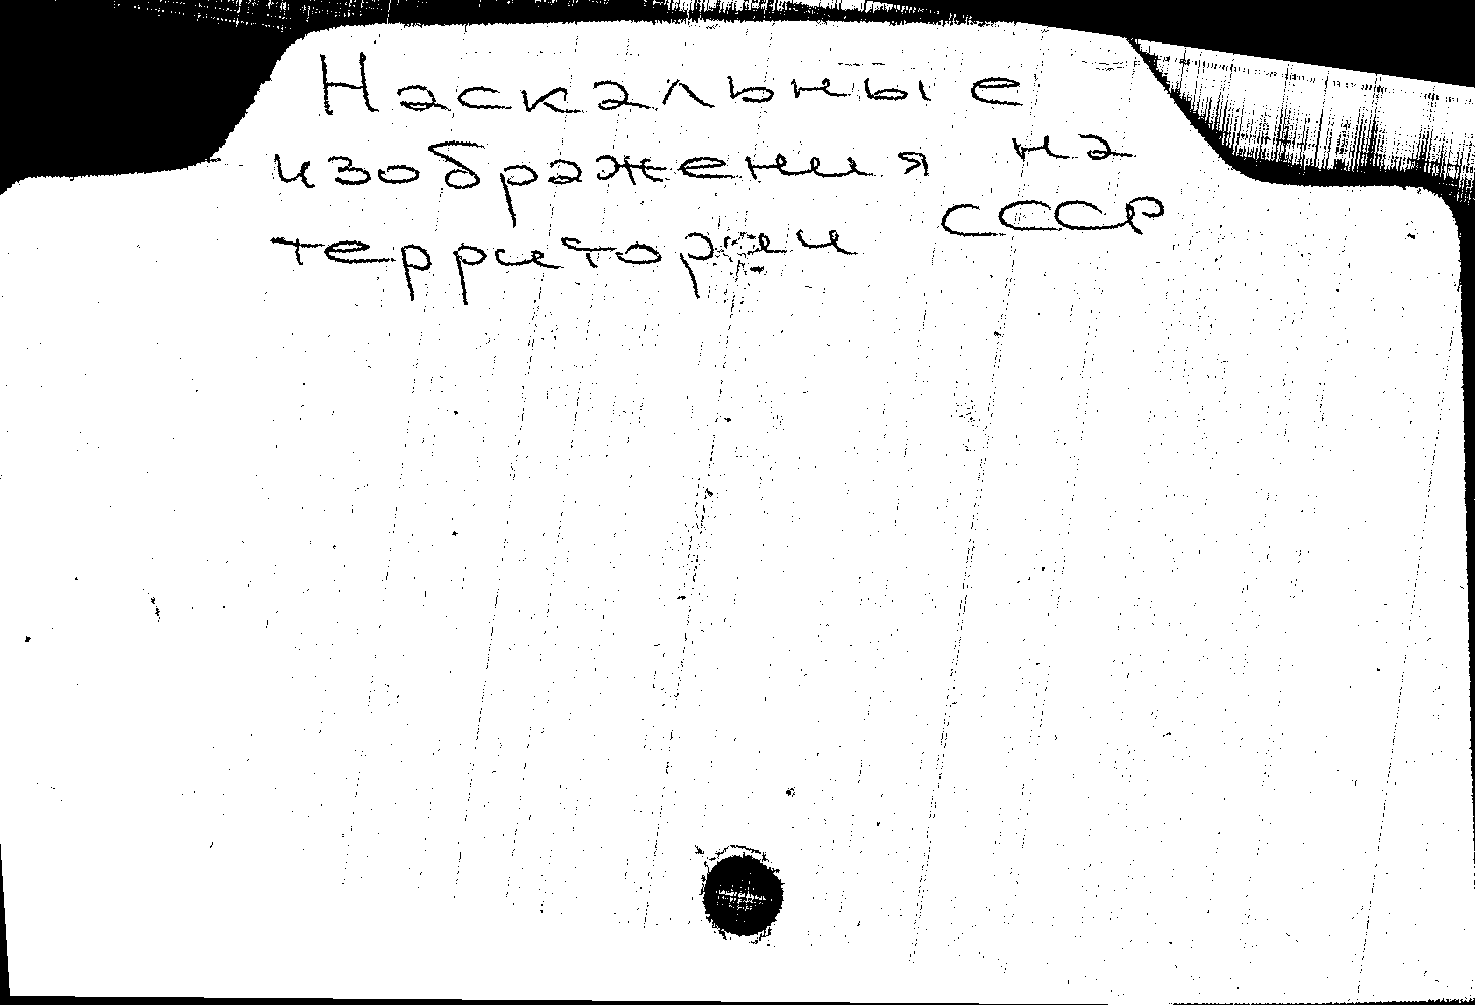 Наскальные
изображения на
территории СССР